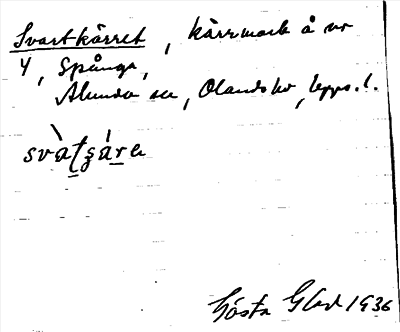 Svartkärret, kärrmark å nr
4, Spånga,
Alunda sn, Olands hd, Upps. l.
svàtʂáre
Gösta Glad 1936